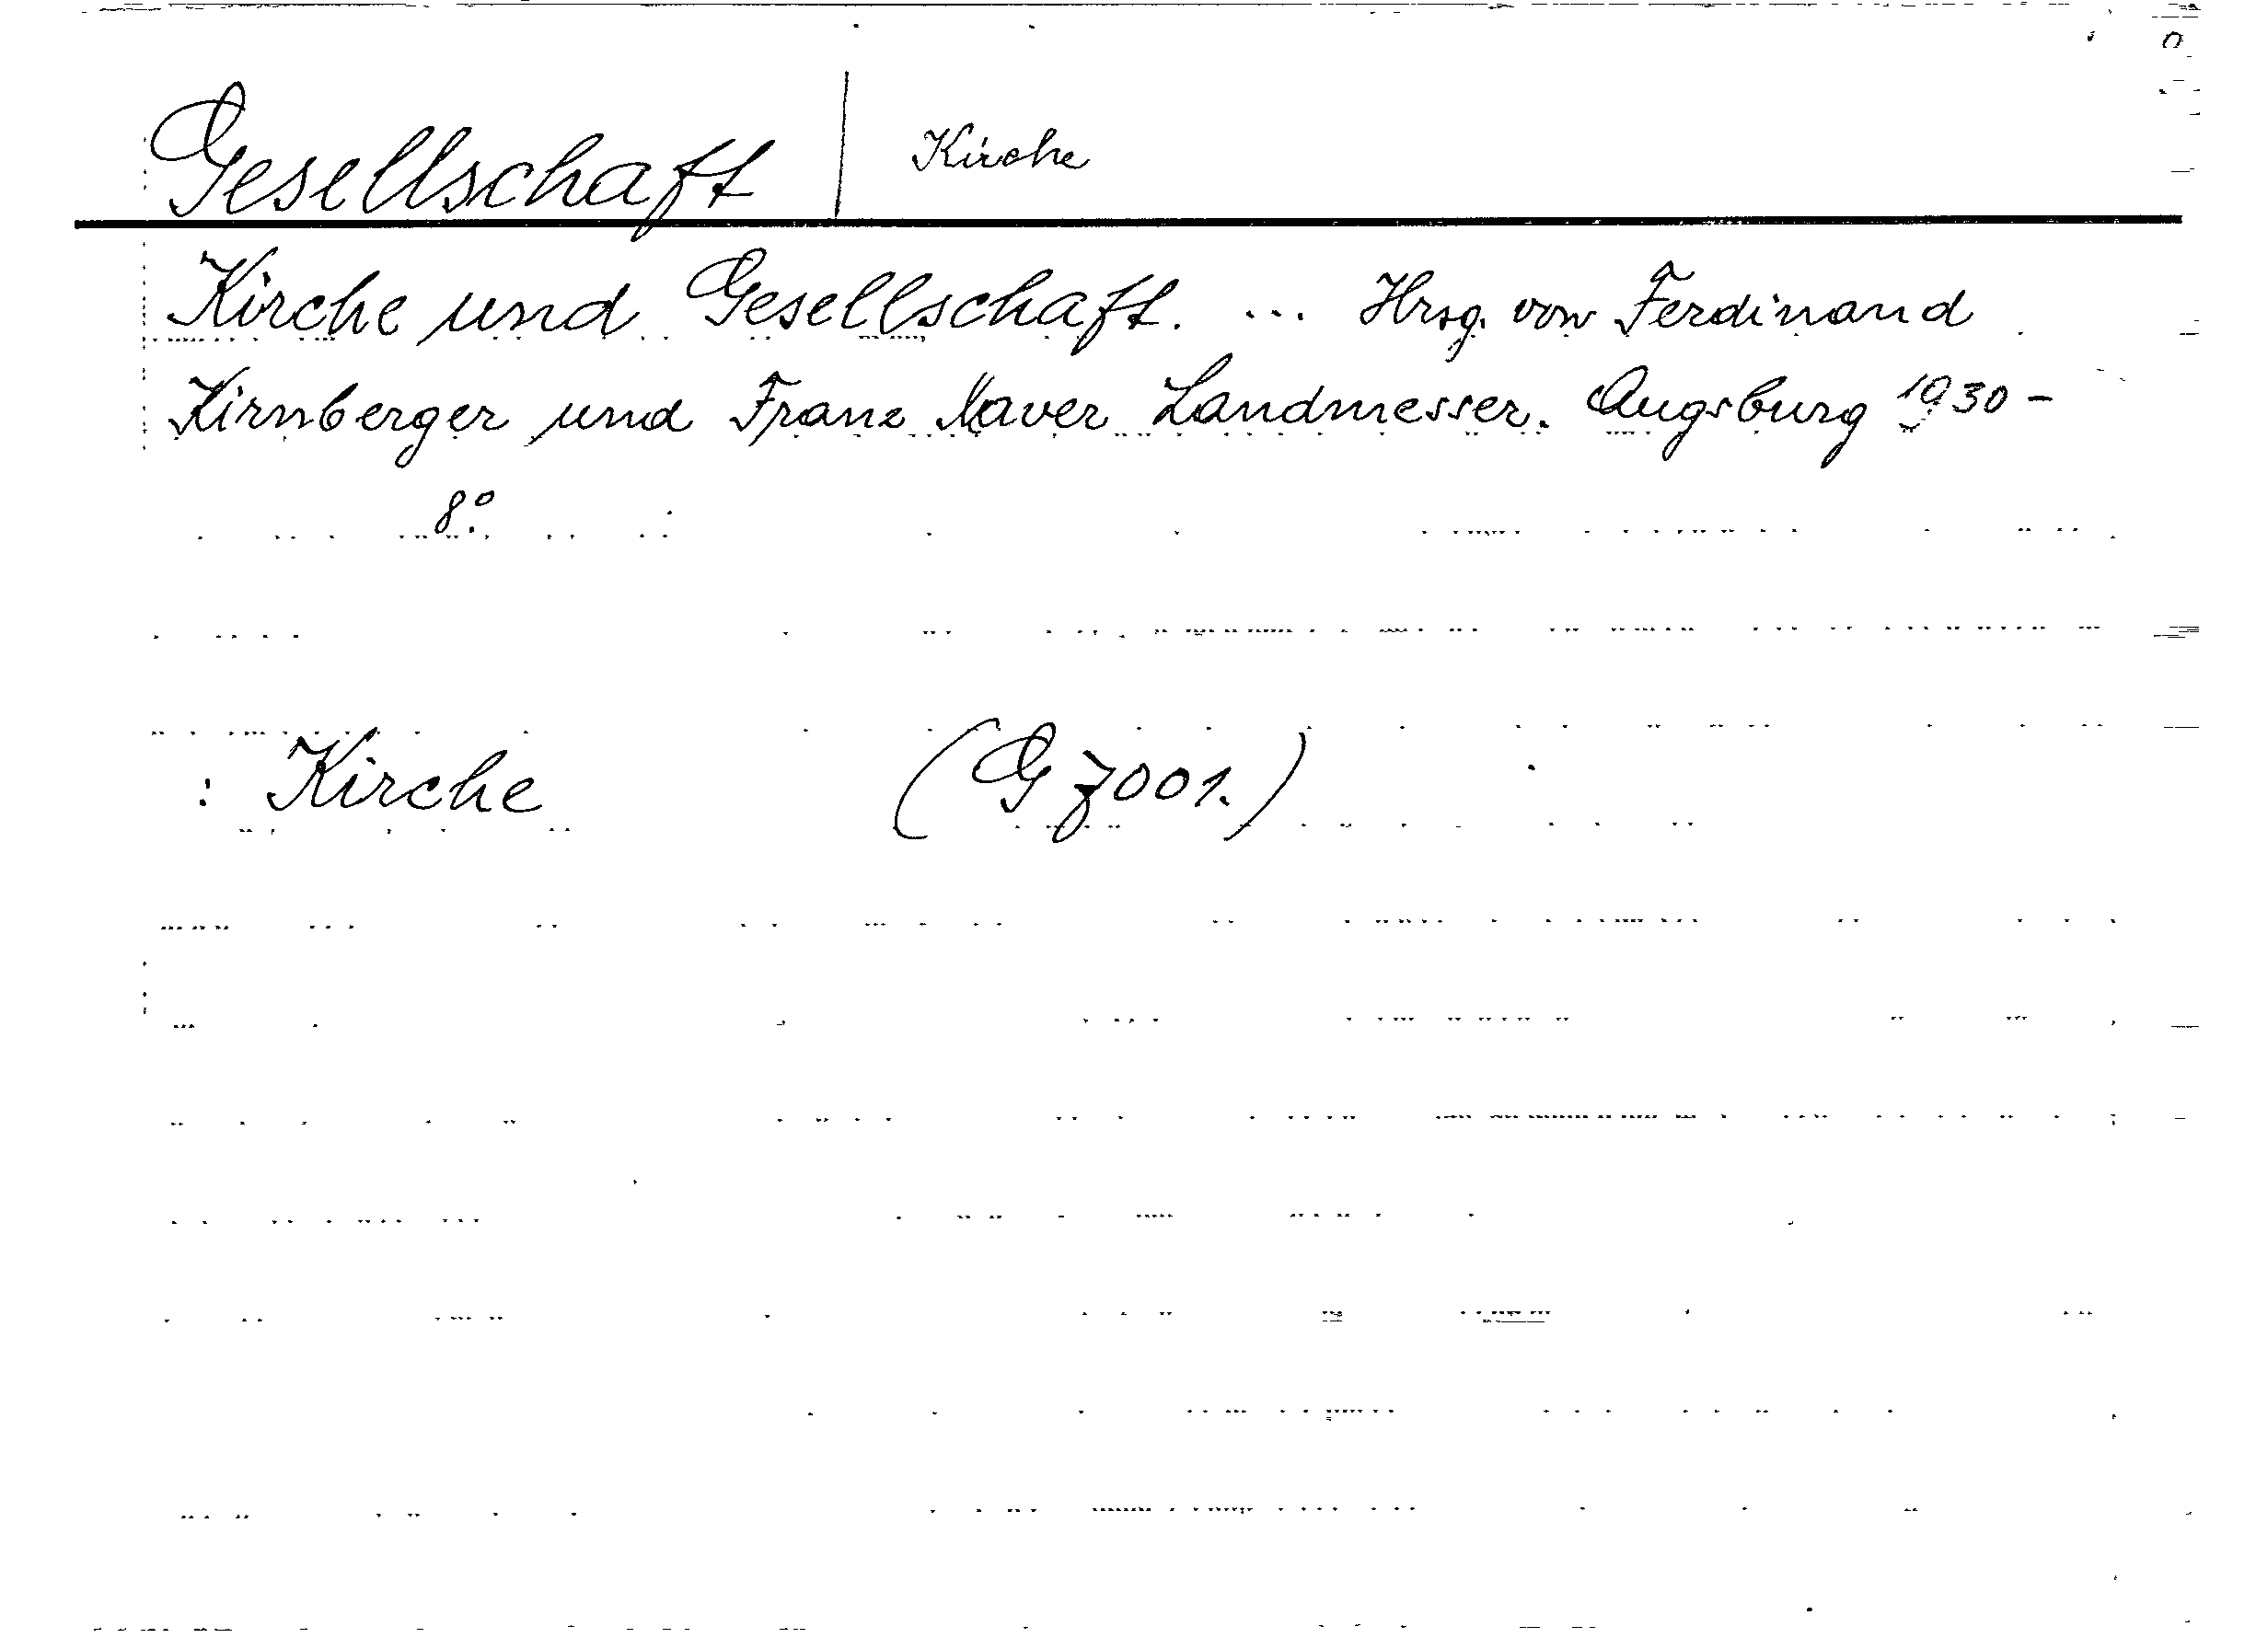 Gesellschaft | Kirche
Kirche und Gesellschaft. ... Hrsg. von Ferdinand
Kirnberger und Franz Xaver Landmesser. Augsburg 1930-
8°.
: Kirche (G 7001.)